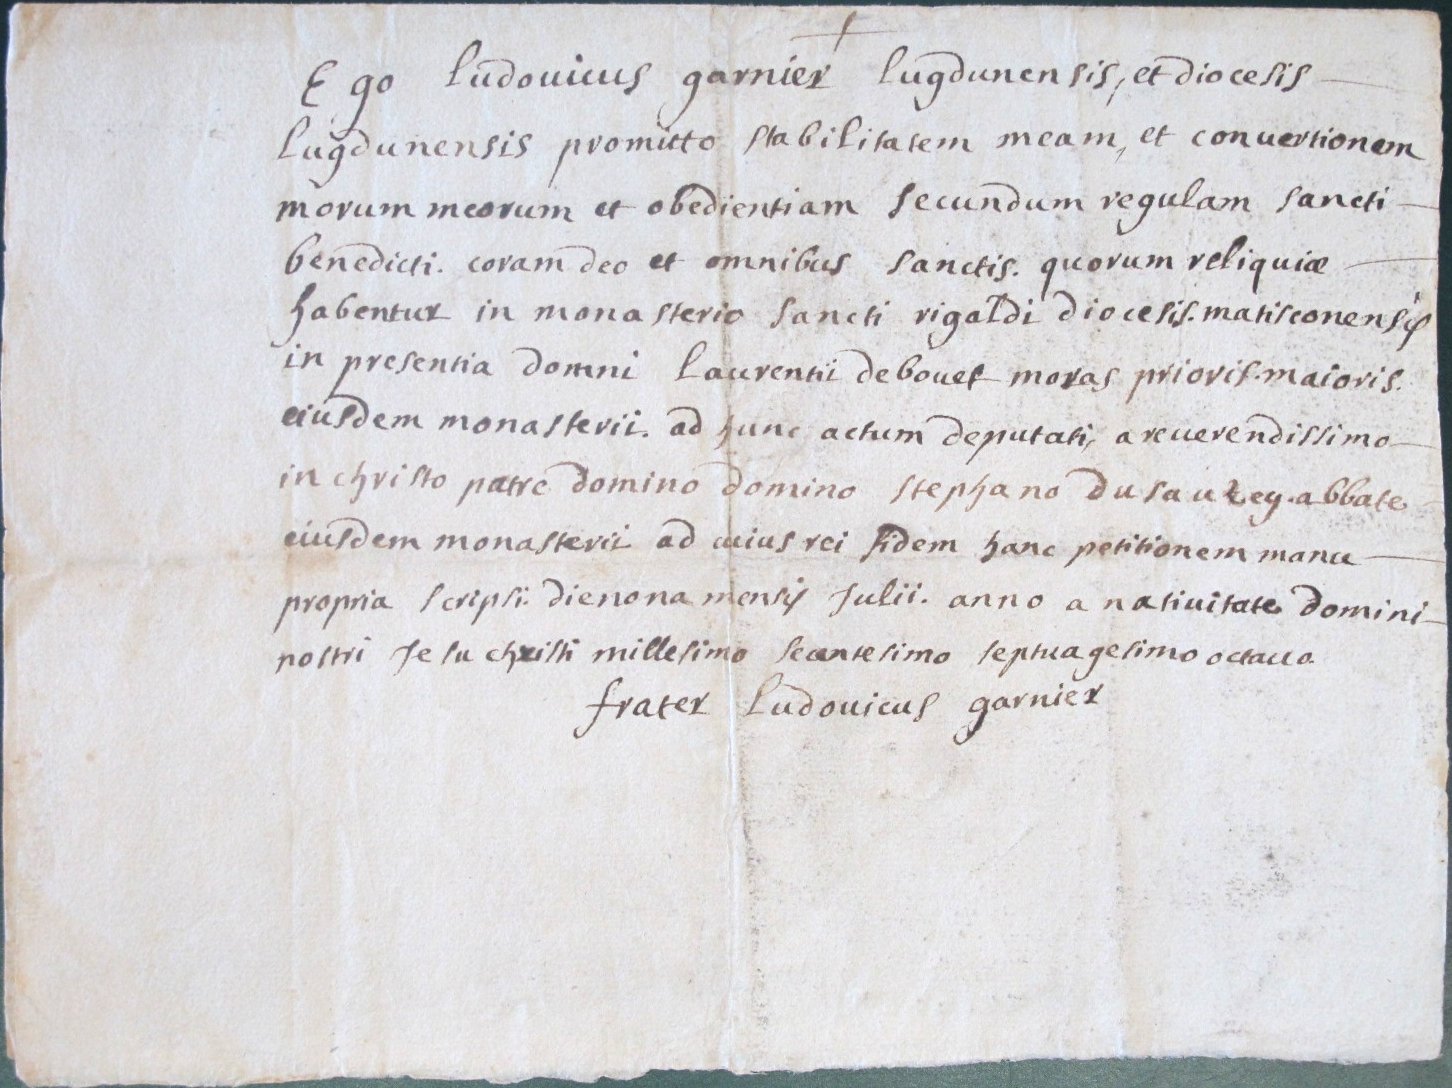 Ego ludovicus garnier lugdunensis, et diocesis
lugdunensis promitto stabilitatem meam, et convertionem
morum meorum et obedientiam secundum regulam sancti
benedicti. coram deo et omnibus sanctis. quorum reliquiæ
habentur in monasterio sancti rigaldi diocesis. matisconensis
in presentia domni laurentii de bouet moras prioris. maioris.
eiusdem monasterii. ad hunc actum deputati, a reuerendissimo
in christo patre domino domino stephano dusauzey. abbate
eiusdem monasterii ad cuius rei fidem hanc petitionem manu
propria scripsi. die nona mensis Julii. anno a natiuitate domini
nostri Jesu christi millesimo secentesimo septuagesimo octauo
frater ludouicus garnier